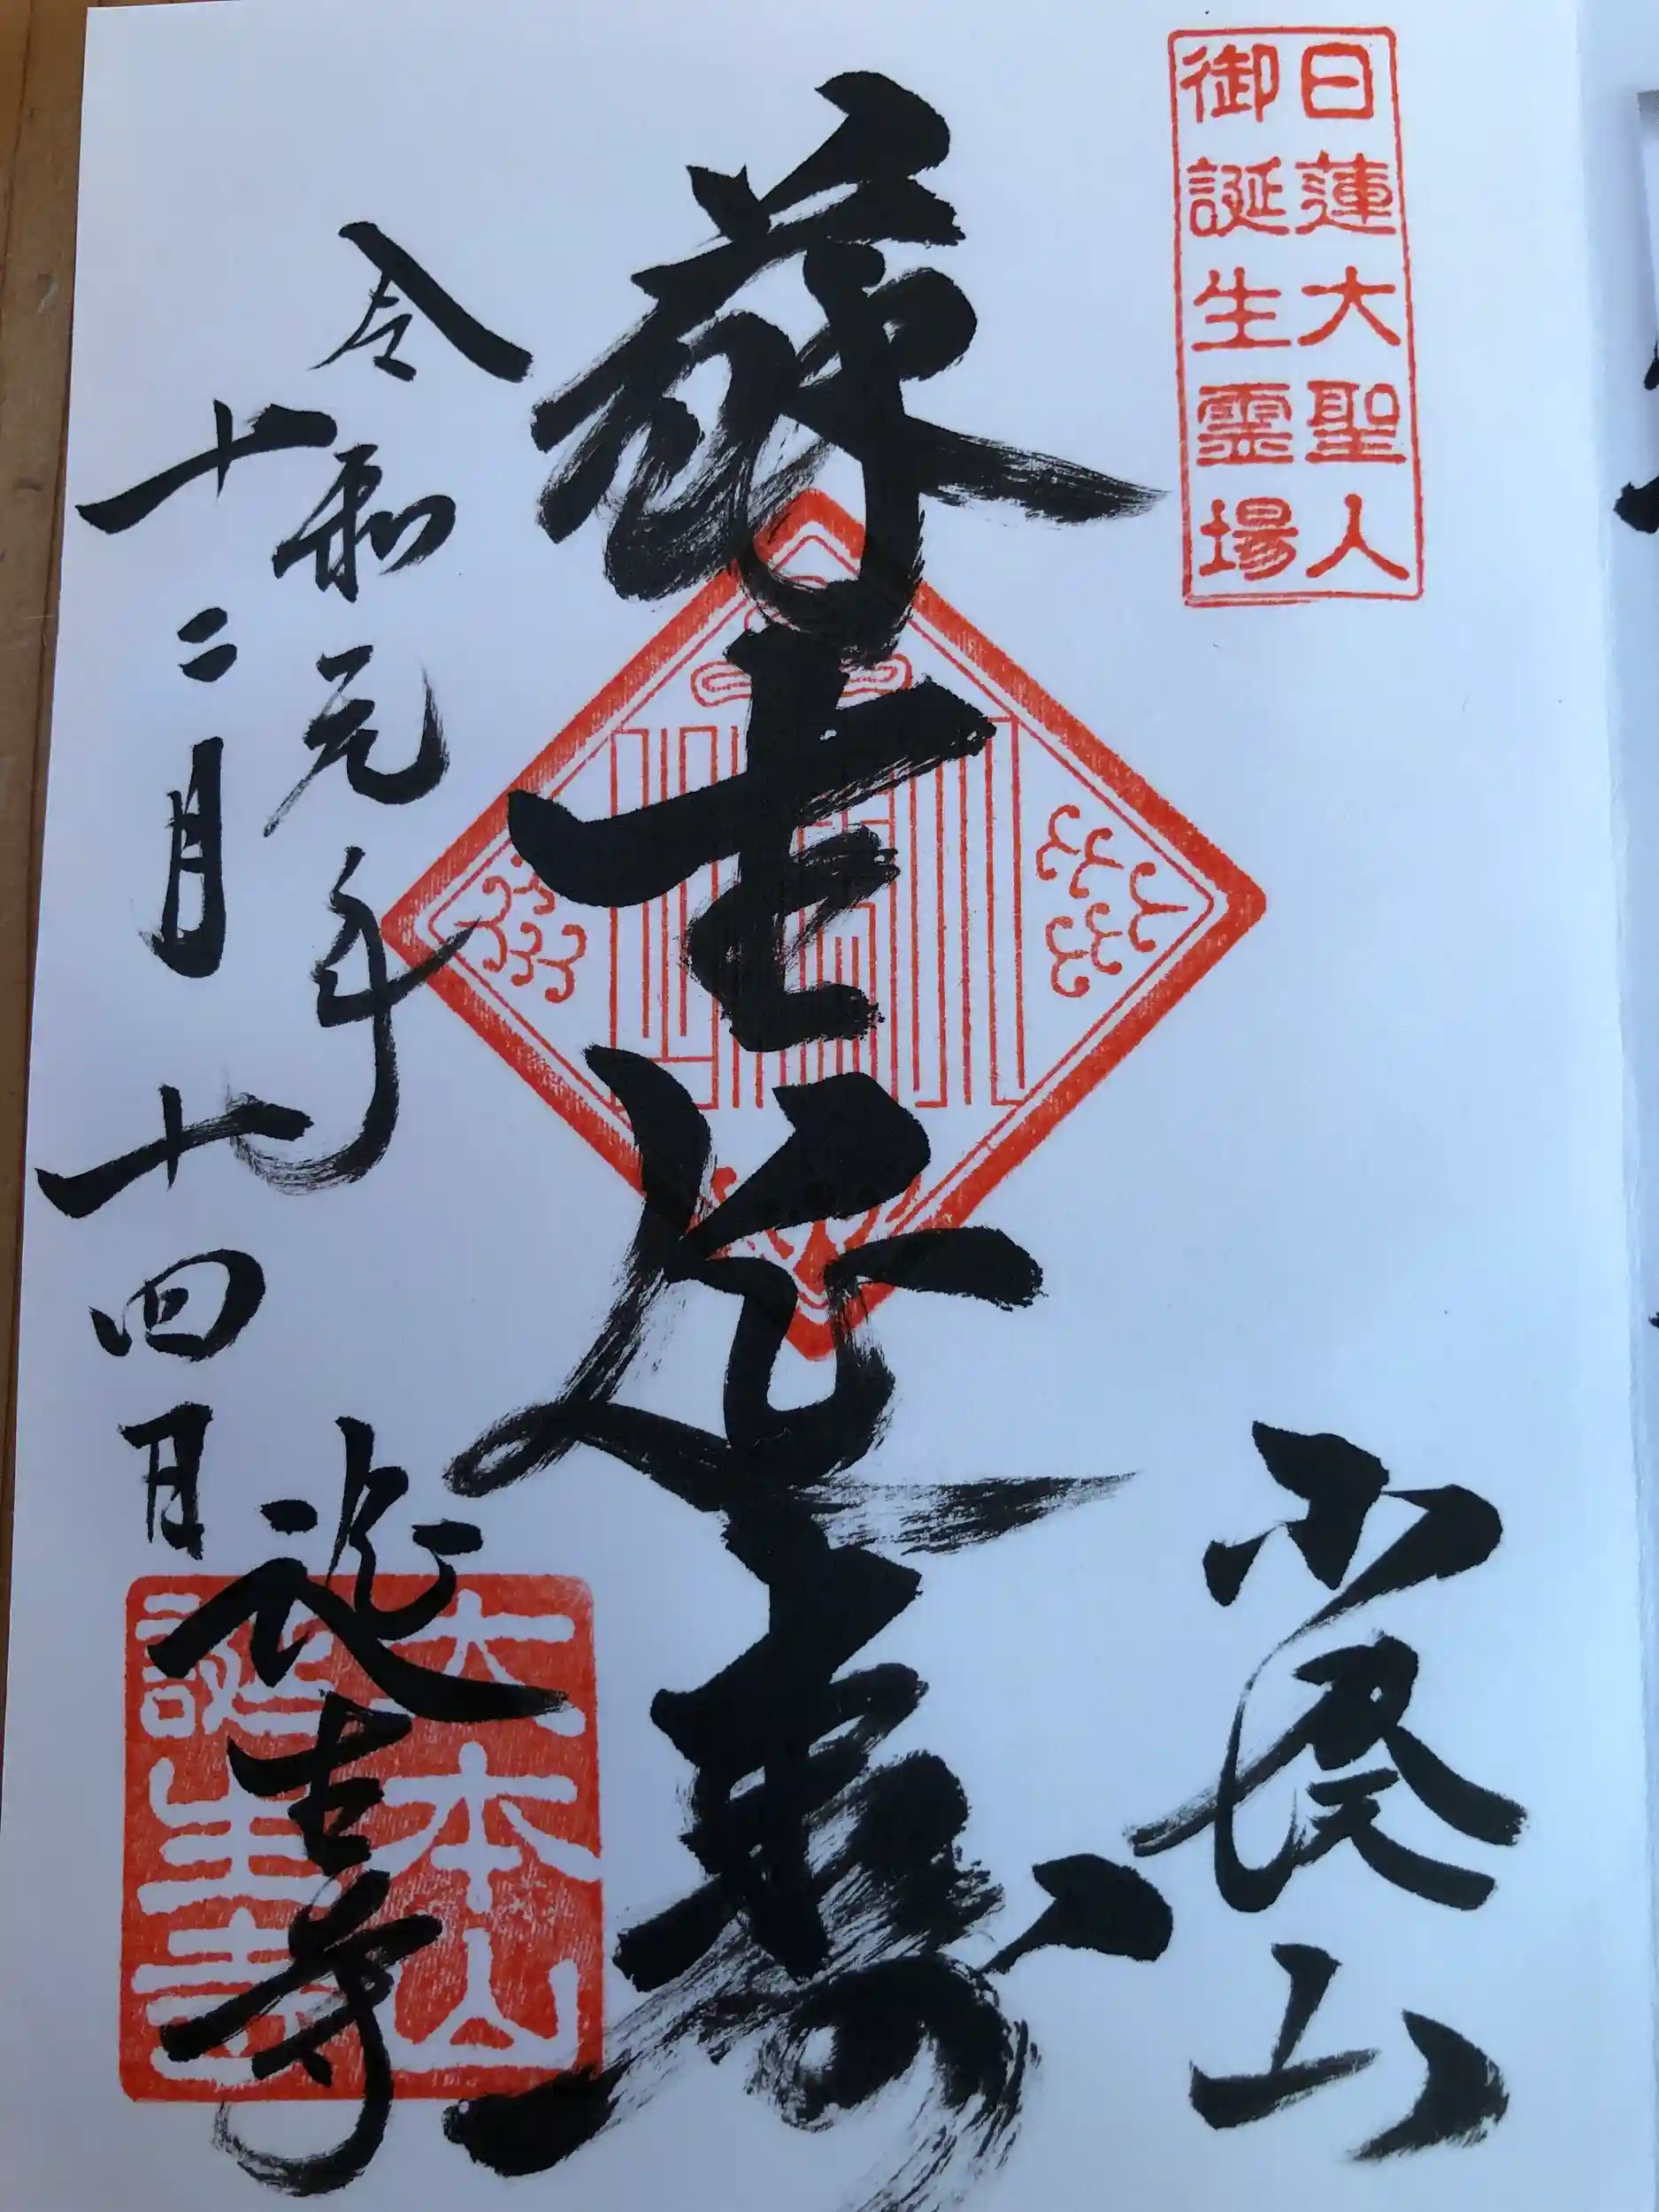 日蓮大聖人
御誕生霊場
小湊山
蘇生延寿
令和元年
十二月十四日
誕生寺
大本山
誕生寺